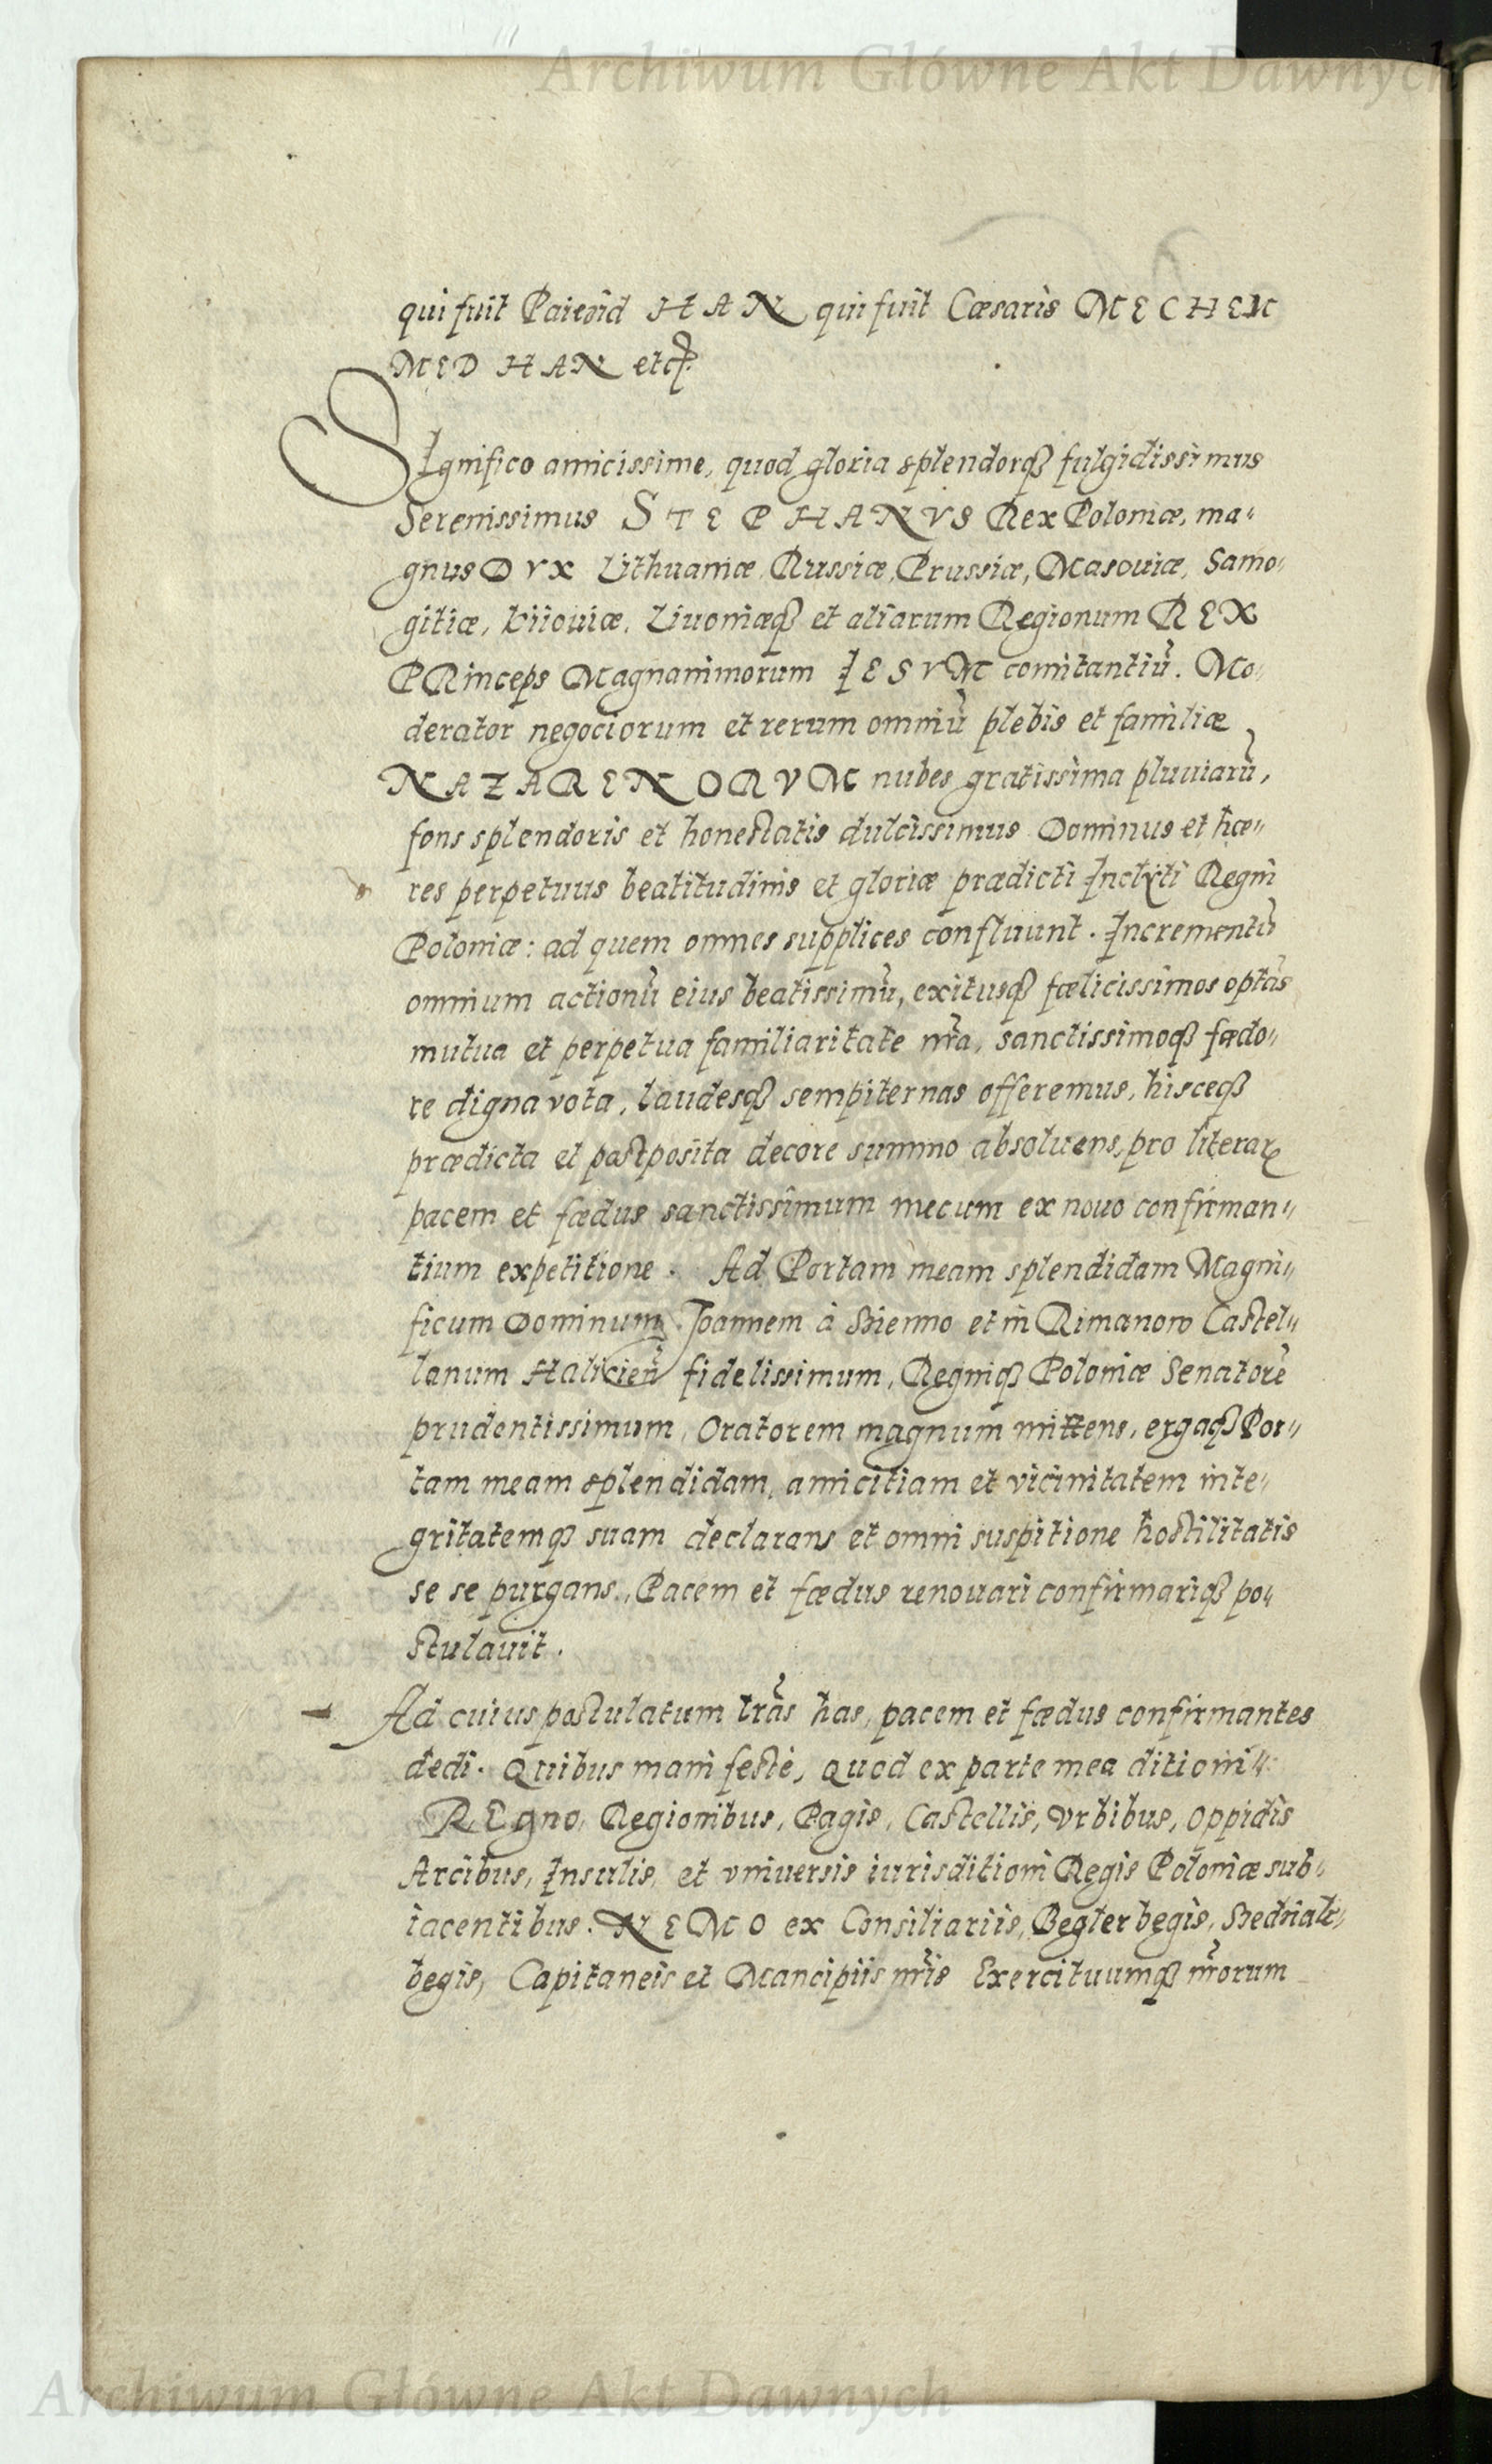 Archiwum Główne Akt Dawnych
qui fuit Paiezid HAN qui fuit Cæsaris MECHEM
MED HAN etc.
SIgnifico amicissime, quod gloria splendorq₃ fulgidissimus
Serenissimus STEPHANVS Rex Poloniæ, ma"
gnus DVX Lithuaniæ, Russiæ, Prussiæ, Masouiæ, Samo"
gitiæ, kiiouiæ, Liuoniæq₃ et aliarum Regionum REX
PRinceps Magnanimorum IESVM comitantiũ. Mo"
derator negociorum et rerum omniũ plebis et familiæ
NAZARENORVM nubes gratissima pluuiarũ,
fons splendoris et honestatis dulcissimus Dominus et hæ"
res perpetuus beatitudinis et gloriæ prædicti Inclyti Regni
Poloniæ: ad quem omnes supplices confluunt. Incrementũ
omnium actionũ eius beatissimũ, exitusq₃ fœlicissimos optãs
mutua et perpetua familiaritate nr̃a, sanctissimoq₃ fœdo"
re digna vota, laudesq₃ sempiternas offeremus, hisceq₃
prædicta et postposita decore summo absoluens, pro literarꝝ
pacem et fœdus sanctissimum mecum ex nouo confirman"
tium expetitione. Ad Portam meam splendidam Magni"
ficum Dominum Joannem à Sienno et in Rimanow Castel"
lanum Halicieñ fidelissimum, Regniq₃ Poloniæ Senatorẽ
prudentissimum, Oratorem magnum mittens, ergaq₃ Por"
tam meam splendidam, amicitiam et vicinitatem inte"
gritatemq₃ suam declarans et omni suspitione hostilitatis
se se purgans, Pacem et fœdus renouari confirmariq₃ po"
stulauit.
Ad cuius postulatum lr̃as has, pacem et fœdus confirmantes
dedi. Quibus manifestè, quod ex parte mea ditioni"
REgno, Regionibus, Pagis, Castellis, Vrbibus, Oppidis
Arcibus, Insulis, et vniuersis iurisditioni Regis Poloniæ sub"
iacentibus. NEMO ex Consiliariis, Beglerbegis, Sedziak"
begis, Capitaneis et Mancipiis nr̃is Exercituumq₃ nr̃orum
Archiwum Główne Akt Dawnych